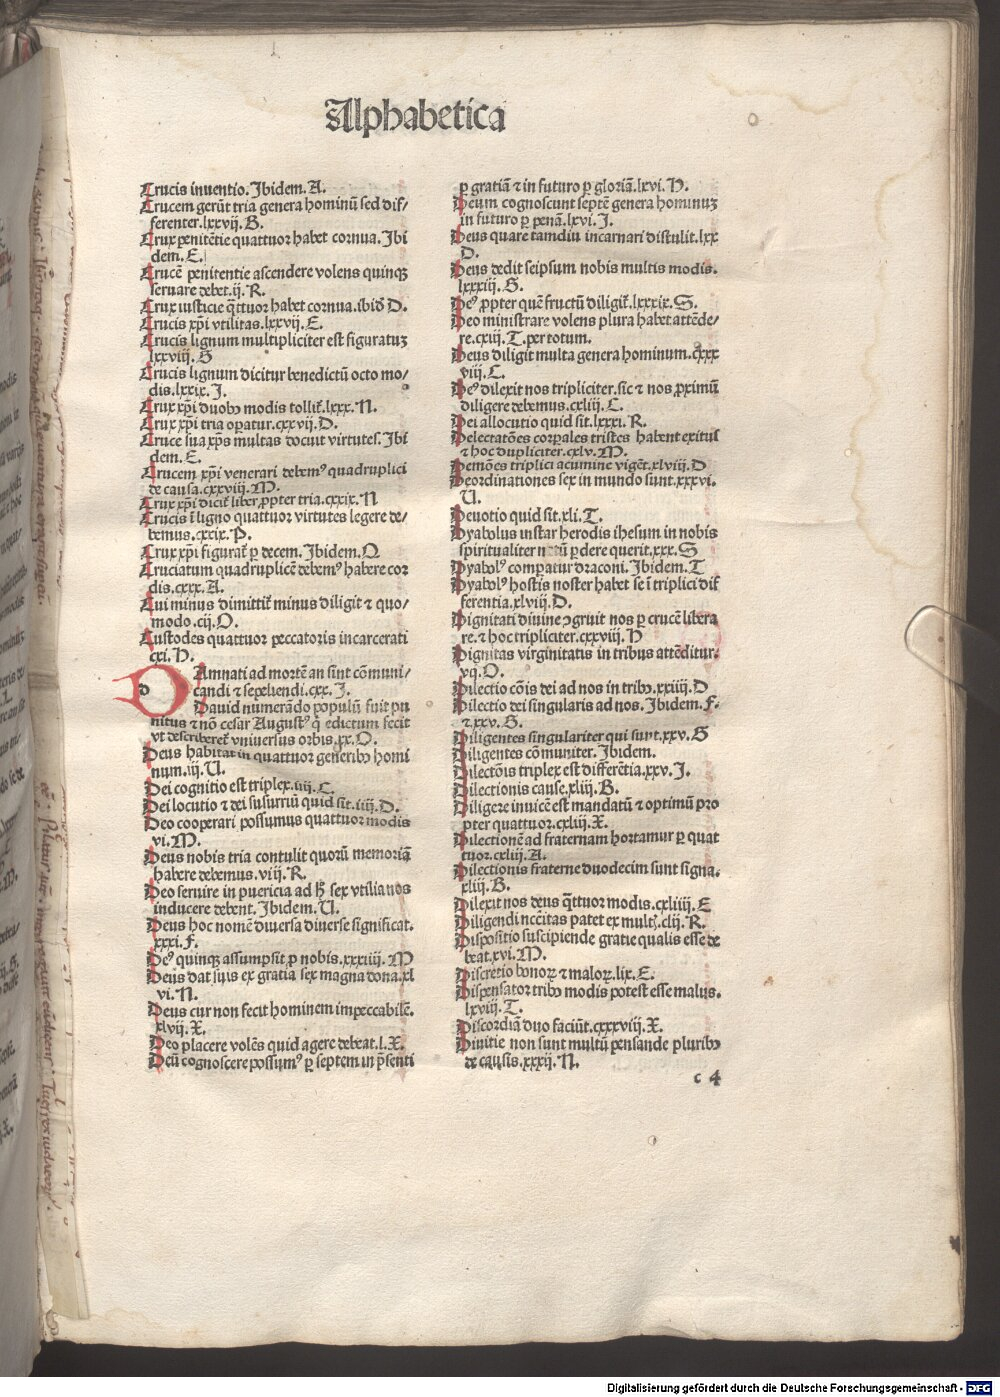 Alphabetica
Crucis inuentio. Ibidem. A.
Crucem gerūt tria genera hominū sed dif-
ferenter. lxxvij. B.
Crux penitētie quattuor habet cornua. Ibi
dem. E.
Crucē penitentie ascendere volens quinqȝ
seruare debet. ij. R.
Crux iusticie q̄ttuor habet cornua. ibid̄ D.
Crucis xp̄i vtilitas. lxxvij. E.
Crucis lignum multipliciter est figuratuȝ
lxxviij. G
Crucis lignum dicitur benedictū octo mo-
dis. lxxix. J.
Crux xp̄i duobꝰ modis tollit̄. lxxx. N.
Crux xp̄i tria oꝑatur. cxxvij. D.
Cruce sua xp̄s multas docuit virtutes. Ibi
dem. E.
Crucem xp̄i venerari debemꝰ quadruplici
de causa. cxxviij. M.
Crux xp̄i dicit̄ liber ꝓpter tria. cxxix. N
Crucis ī ligno quattuor virtutes legere de-
bemus. cxxix. P.
Crux xp̄i figurat̄ ꝑ decem. Ibidem. Q
Cruciatum quadruplicē debemꝰ habere cor
dis. cxxx. A.
Cui minus dimittit̄ minus diligit ⁊ quo-
modo. cij. O.
Custodes quattuor peccatoris incarcerati
cxi. H.
DAmnati ad mortē an sint cōmuni-
candi ⁊ sepeliendi. cxx. J.
Dauid numerādo populū fuit pu
nitus ⁊ nō cesar Augustꝰ q̄ edictum fecit
vt describeret̄ vniuersus orbis. xx. O.
Deus habitat in quattuor generibꝰ homi
num. iij. U.
Dei cognitio est triplex. iiij. C.
Dei locutio ⁊ dei susurriū quid sit. iiij. D.
Deo cooperari possumus quattuor modis
vi. M.
Deus nobis tria contulit quorū memoriā
habere debemus. viij. R.
Deo seruire in puericia ad hꝰ sex vtilia nos
inducere debent. Ibidem. U.
Deus hoc nomē diuersa diuerse significat.
xxxi. F.
Deꝰ quinqȝ assumpsit ꝓ nobis. xxxiiij. M
Deus dat suis ex gratia sex magna dona. xl
vi. N.
Deus cur non fecit hominem impeccabilē.
xlvij. X.
Deo placere volēs quid agere debeat. l. X.
Deū cognoscere possumꝰ ꝑ septem in p̄senti
ꝑ gratiā ⁊ in futuro ꝑ gloriā. lxvi. H.
Deum cognoscunt septē genera hominuȝ
in futuro ꝑ penā. lxvi. J.
Deus quare tamdiu incarnari distulit. lxx
D.
Deus dedit seipsum nobis multis modis.
lxxxiij. G.
Deꝰ ꝓpter quē fructū diligit̄. lxxxix. S.
Deo ministrare volens plura habet attēde-
re. cxiij. T. per totum.
Deus diligit multa genera hominum. cxxx
viij. C.
Deꝰ dilexit nos tripliciter. sic ⁊ nos ꝓximū
diligere debemus. cxliij. C.
Dei allocutio quid sit. lxxxi. R.
Delectatōes corꝑales tristes habent exitus
⁊ hoc dupliciter. cxlv. M.
Demōes triplici acumine vigēt. xlviij. D
Deordinationes sex in mundo sunt. xxxvi.
U.
Deuotio quid sit. xli. T.
Dyabolus instar herodis ihesum in nobis
spiritualiter ꝑdere querit. xxx. S
Dyabolꝰ comꝑatur draconi. Ibidem. T
Dyabolꝰ hostis noster habet se ī triplici dif
ferentia. xlviij. D.
Dignitati diuine ↄgruit nos ꝑ crucē libera
re. ⁊ hoc tripliciter. cxxviij. H
Dignitas virginitatis in tribus attēditur.
vij. O.
Dilectio cōis dei ad nos in tribꝰ. xxiiij. D
Dilectio dei singularis ad nos. Ibidem. F.
⁊ xxv. G.
Diligentes singulariter qui sunt. xxv. G
Diligentes cōmuniter. Ibidem.
Dilectōis triplex est differētia. xxv. J.
Dilectionis cause. xliij. B.
Diligere inuicē est mandatū ⁊ optimū pro
pter quattuor. cxliij. X.
Dilectionē ad fraternam hortamur ꝑ quat
tuor. cxliij. A.
Dilectionis fraterne duodecim sunt signa.
xliij. B.
Dilexit nos deus q̄ttuor modis. cxliiij. E
Diligendi ncc̄itas patet ex multꝭ. clij. R.
Dispositio suscipiende gratie qualis esse de
beat. xvi. M.
Discretio bonoꝝ ⁊ maloꝝ. lix. E.
Dispensator tribꝰ modis potest esse malus.
lxviij. T.
Discordiā duo faciūt. cxxxviij. X.
Diuitie non sunt multū pensande pluribꝰ
de causis. xxxij. N.
c 4
Digitalisierung gefördert durch die Deutsche Forschungsgemeinschaft - DFG